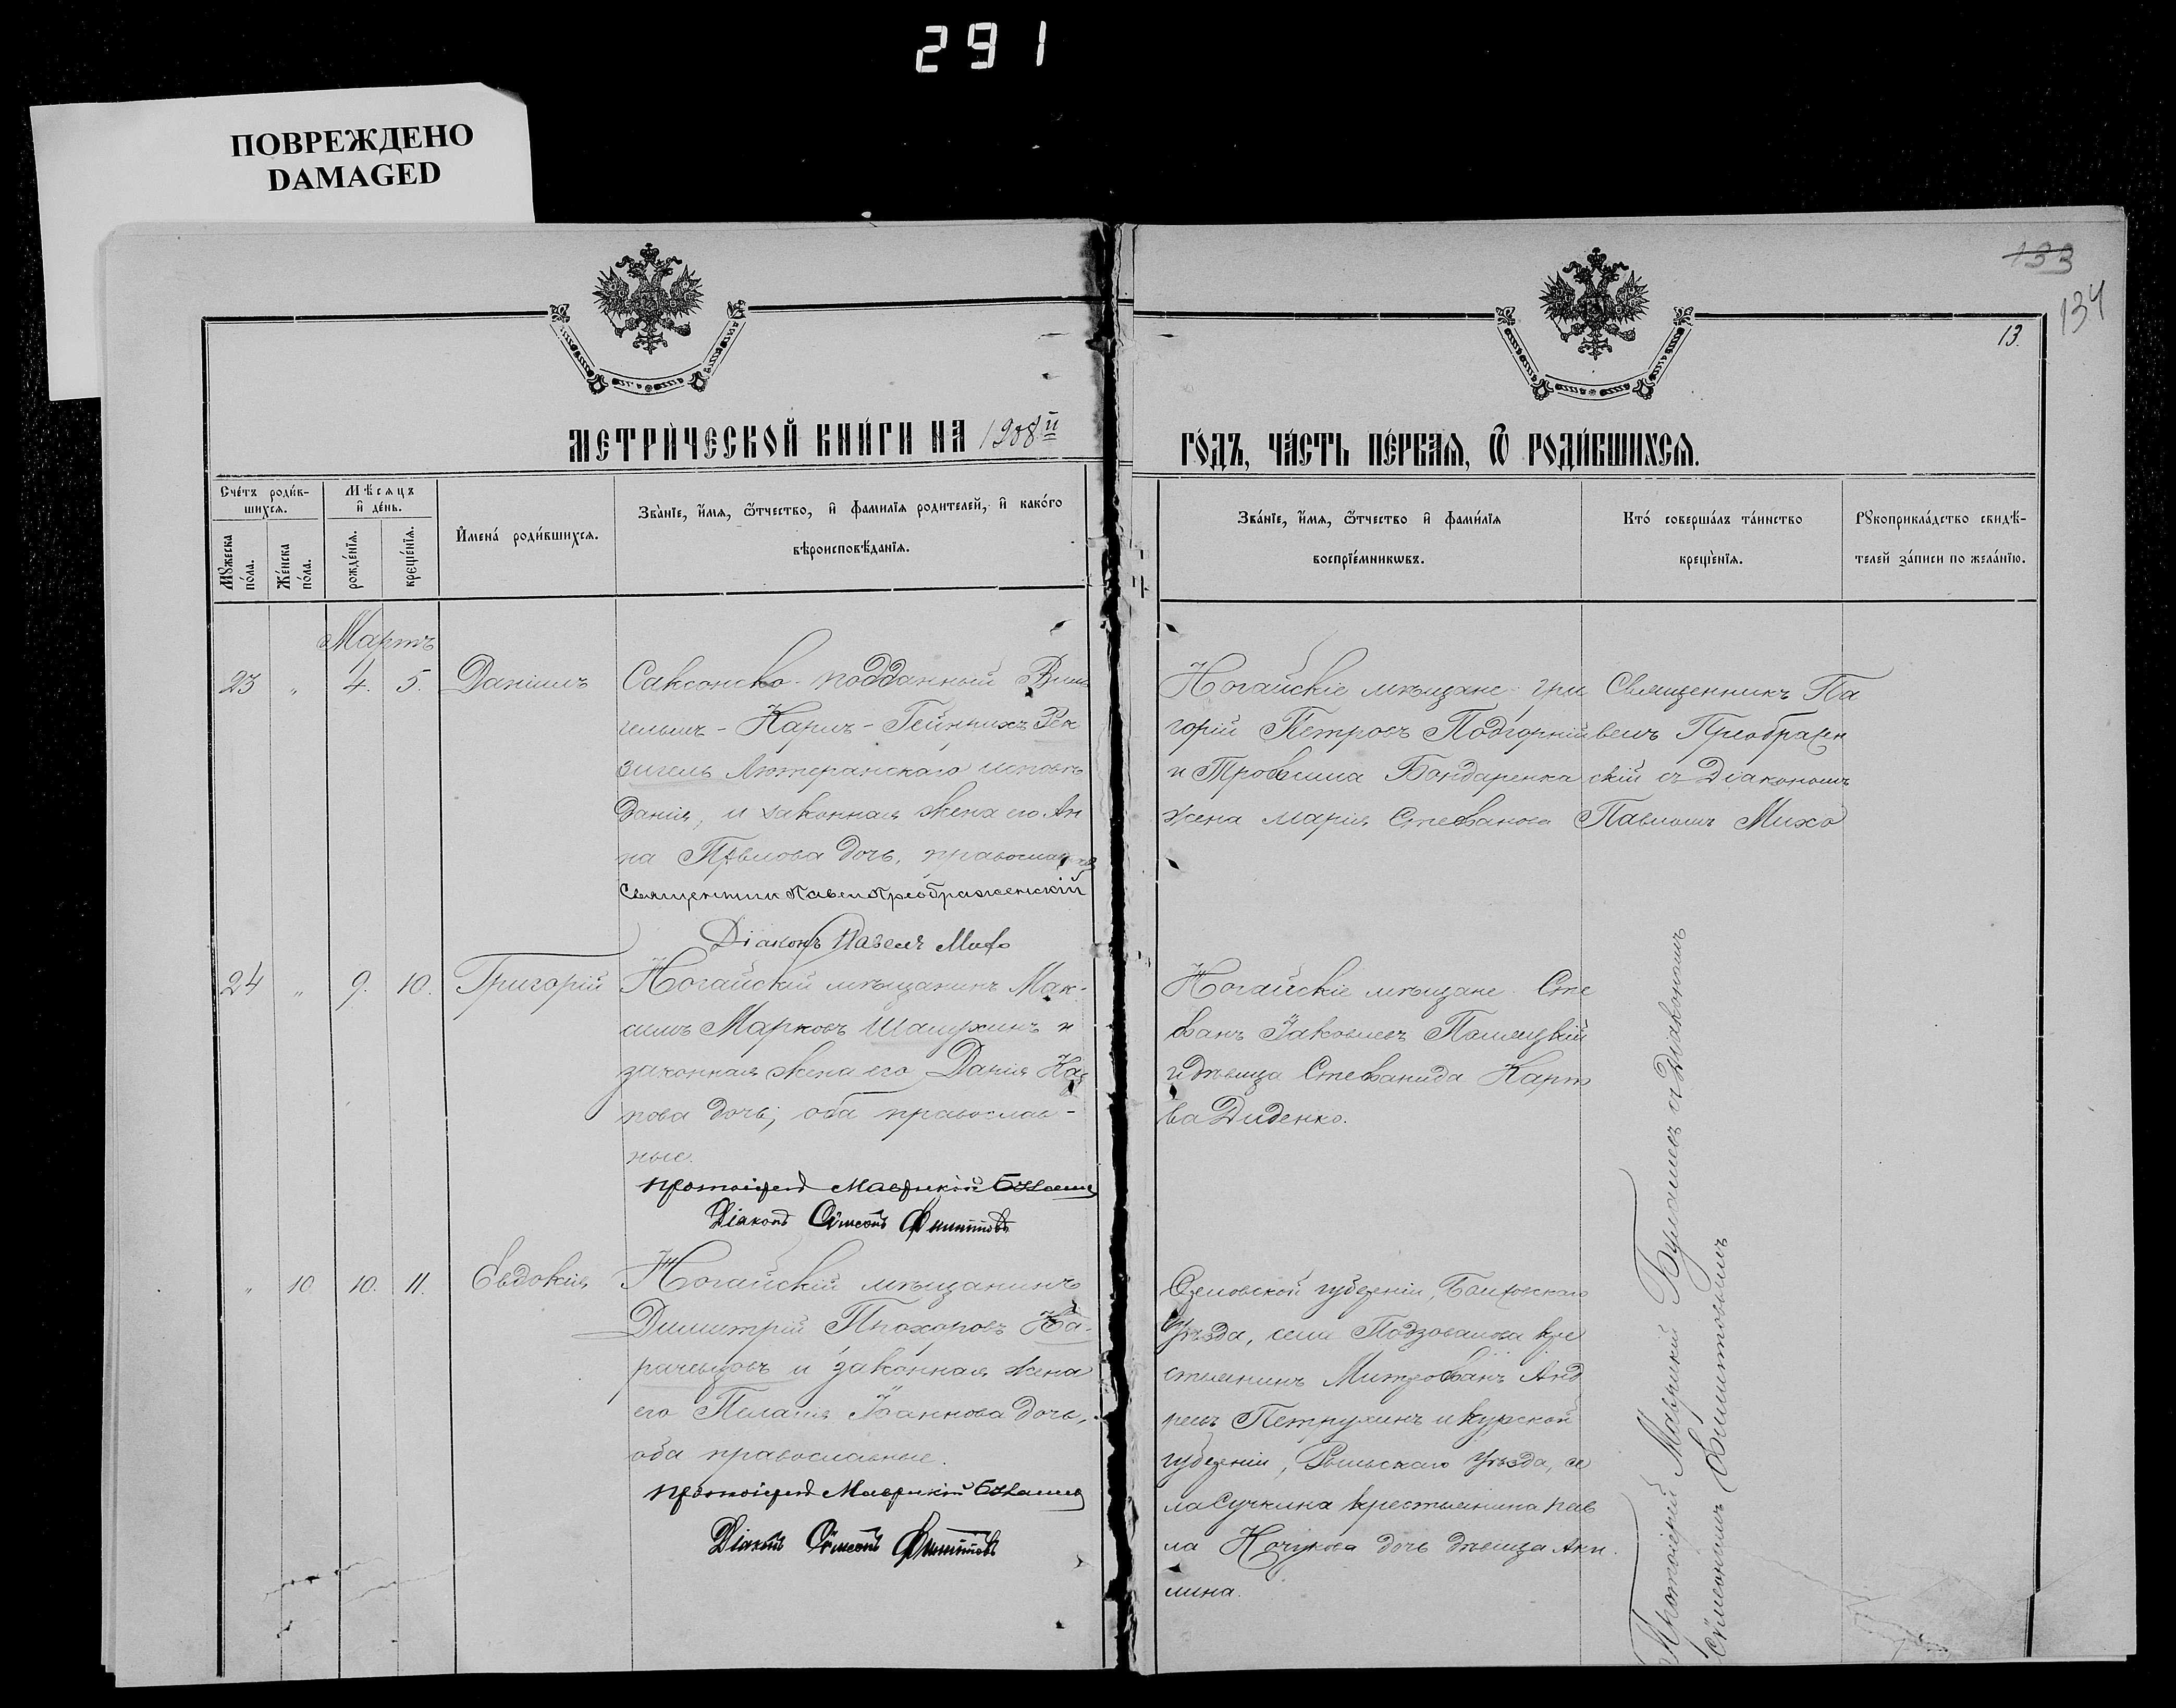 291
ПОВРЕЖДЕНО
DAMAGED
133
134
13.
МЕТРИ́ЧЕСКОЙ КНИ́ГИ НА 1908 й
ГО́ДЪ, ЧА́СТЬ ПЕ́РВАЯ, Ѿ РОДИ́ВШИХСЯ.
Сче́тъ роди́в-
шихся.
Мꙋжеска по́ла.
Же́нска по́ла.
Мѣсяцъ
и҆ де́нь.
рожде́нїя.
креще́нїя.
И҆мена́ роди́вшихся.
Зва́нїе, и҆́мя, ѻ҆́тчество, и҆ фами́лїя роди́телей, и҆ како́го
вѣроисповѣ́данїя.
Зва́нїе, и҆́мя, ѻ҆́тчество и҆ фами́лїя
воспрїе́мникѡвъ.
Кто́ соверша́лъ та́инство
креще́нїя.
Рꙋкоприкла́дство свидѣ́-
телей за́писи по жела́нїю.
Мартъ
23 " 4. 5. Даніилъ
Саксонско-подданный Виль
гельмъ - Карлъ - Гейнрихъ Рек
зигель Лютеранскаго исповѣ
данія, и законная жена его Ан
на Павлова дочь, православная
Священникъ Павелъ Преображенскій
Діаконъ Павелъ Михо
Ногайскіе мѣщане Гри
горій Петровъ Подгорній
и Трофима Бондаренка
жена Марія Стефанова
Священникъ Па
велъ Преображен
скій съ Діакономъ
Павломъ Михо
24 " 9. 10. Григорій
Ногайскій мѣщанинъ Мак-
симъ Марковъ Шалухинъ и
законная жена его Дарія
дочь, оба православ-
ные.
Протоіерей Маврикій
Діаконъ Сѵмеонъ Филиповъ
Ногайскіе мѣщане Сте
фанъ Іаковлевъ
и дѣвица Стефанида
Диденко.
" 10 10. 11. Евдокія
Ногайскій мѣщанинъ
Димитрій Прохоровъ Ка-
рачевцовъ и законная жена
его Пелагія Іоаннова дочь,
оба православные.
Протоіерей Маврикій
Діаконъ Сѵмеонъ Филиповъ
Орловской губерніи, Болховскаго
уѣзда, села кре
стьянинъ Митрофанъ Анд
реевъ Петрухинъ и Курской
губерніи, Рыльскаго уѣзда, се
ла Сучкина крестьянина Пав
ла дочь дѣвица Аки
лина.
Протоіерей Маврикій съ Діакономъ
Сѵмеономъ Филиповымъ